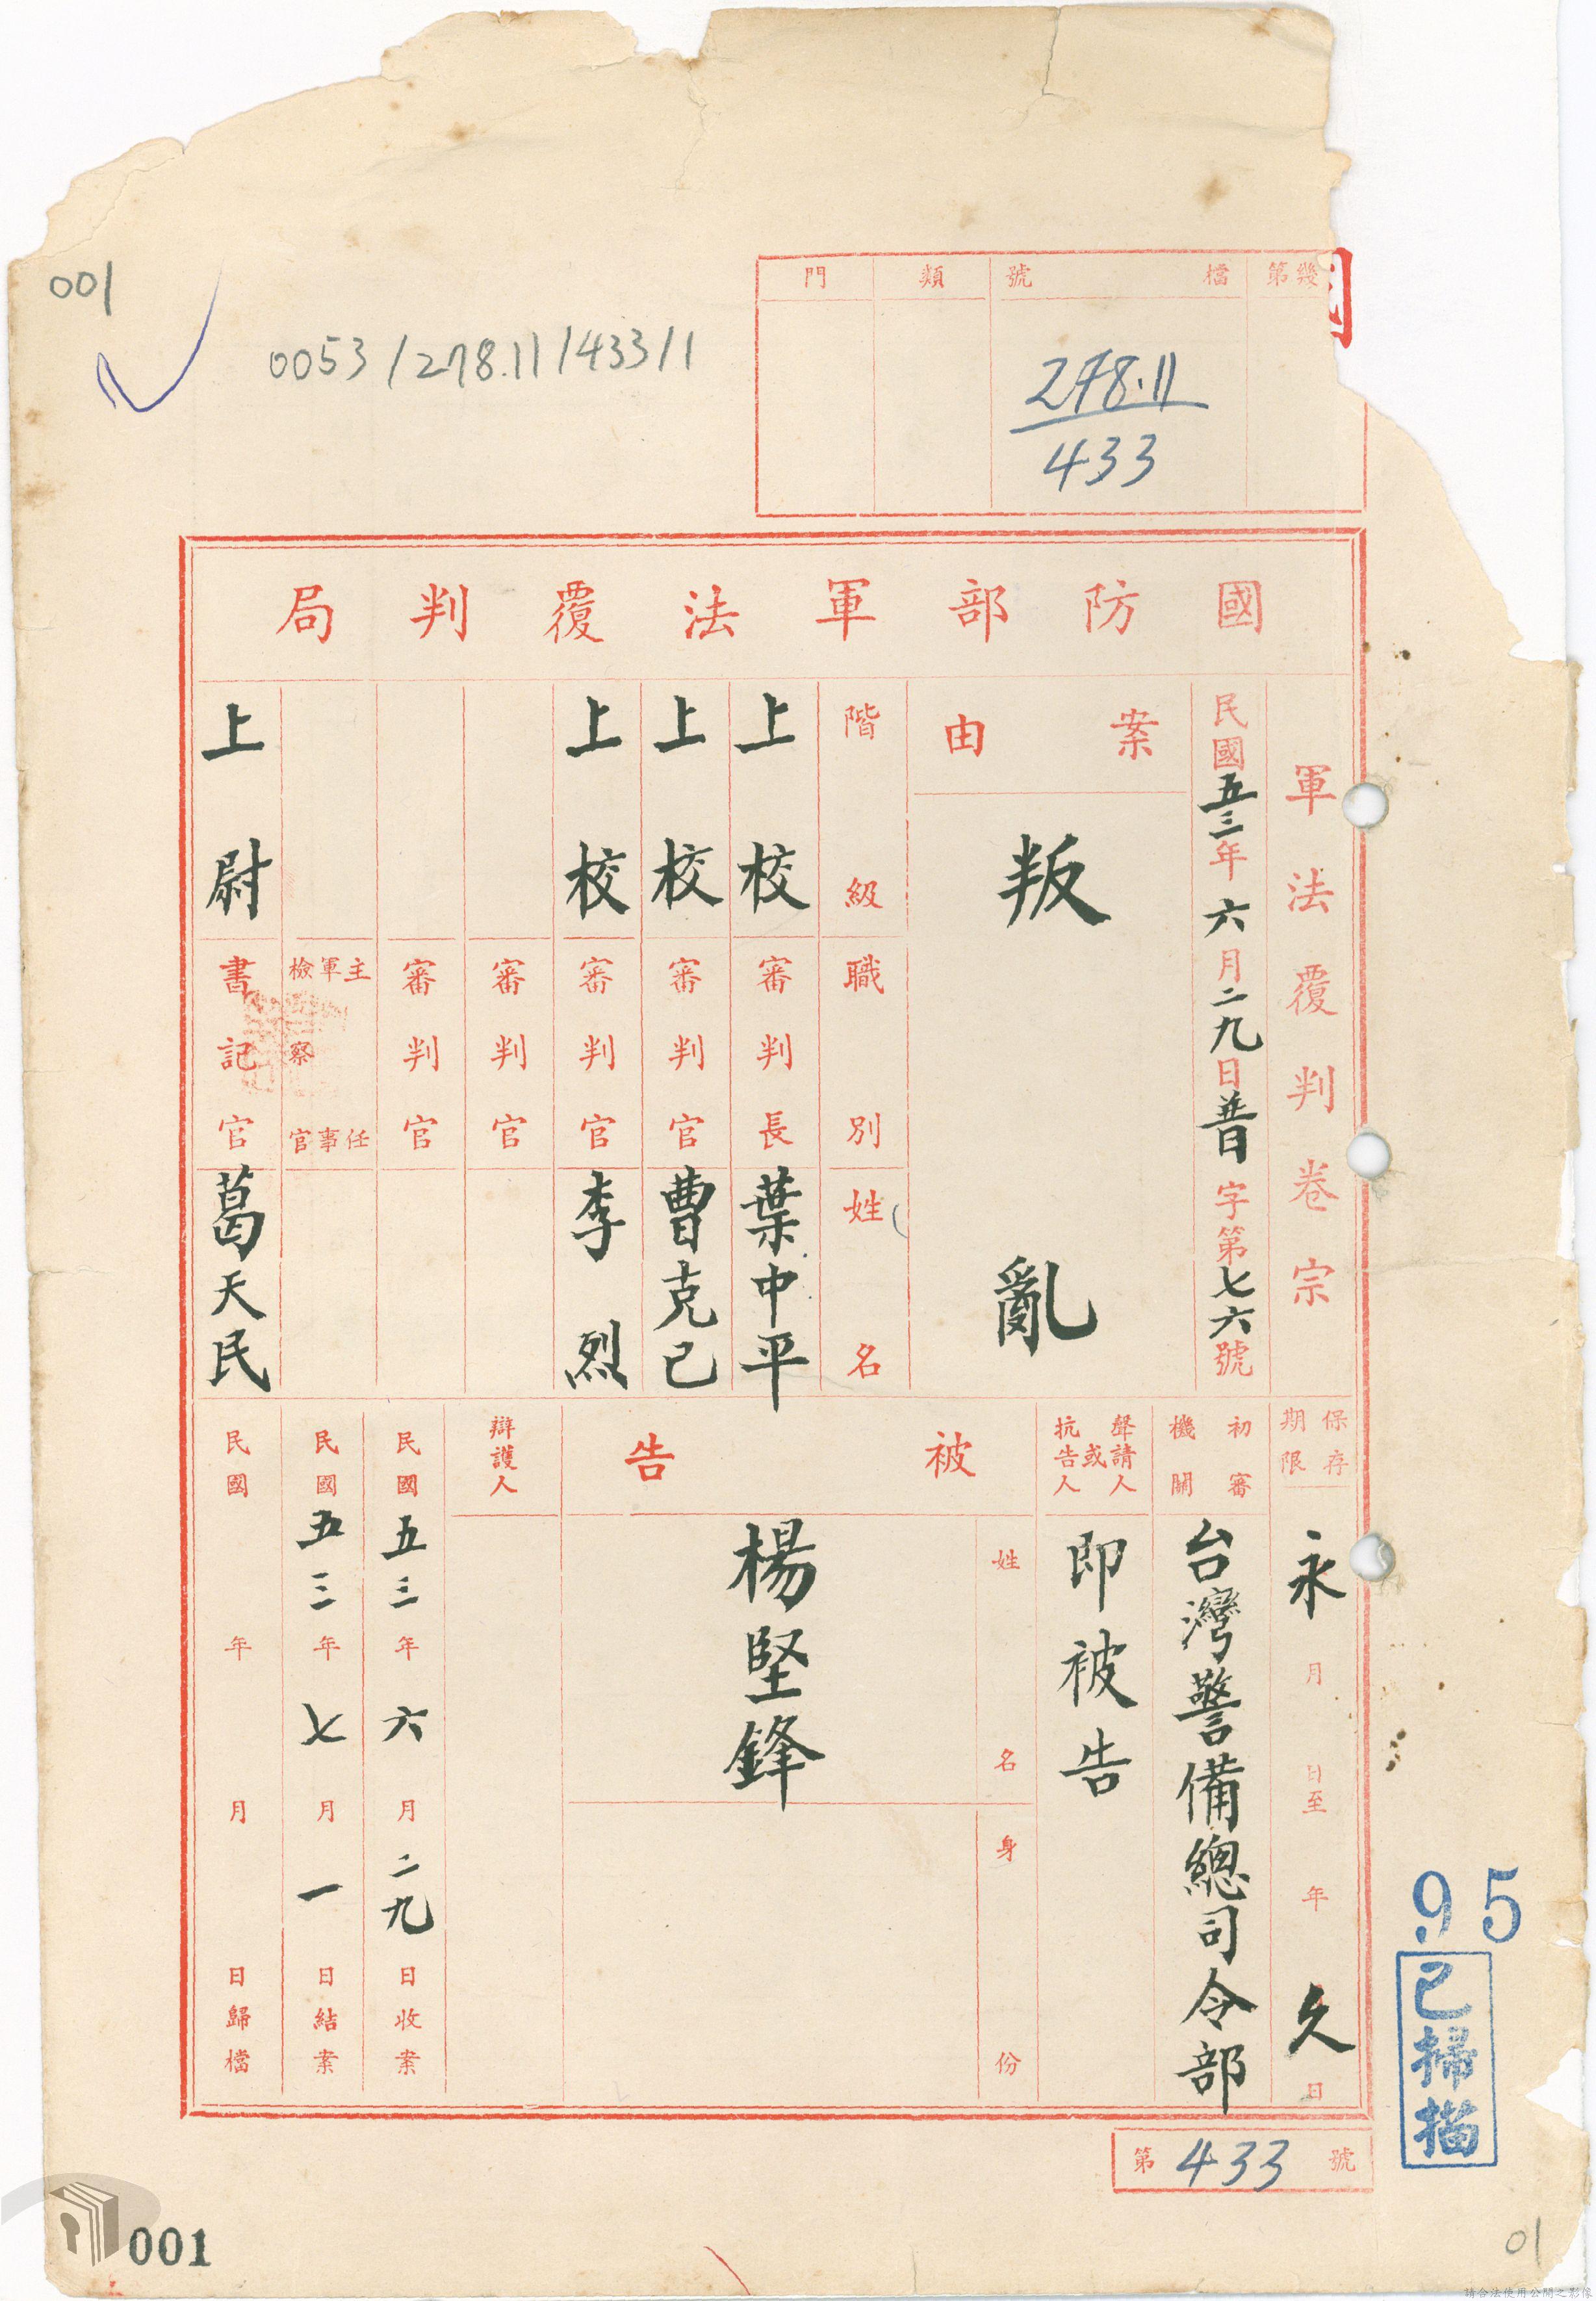 001
0053/278.11/433/1
第幾
檔號
類
門
278.11
433
國防部軍法覆判局
軍法覆判卷宗
民國五三年六月二九日普字第七六號
案由
叛亂
階級
職別
姓名
上校
審判長
葉中平
上校
審判官
曹克己
上校
審判官
李烈
審判官
審判官
主任軍事檢察官
上尉
書記官
葛天民
保存期限
永久
月日至年日
初審機關
台灣警備總司令部
聲請人或抗告人
即被告
被告
姓名
楊堅鋒
身份
辯護人
民國五三年六月二九日收案
民國五三年七月一日結案
民國年月日歸檔
第433號
95
已掃描
001
01
請合法使用公開之影像